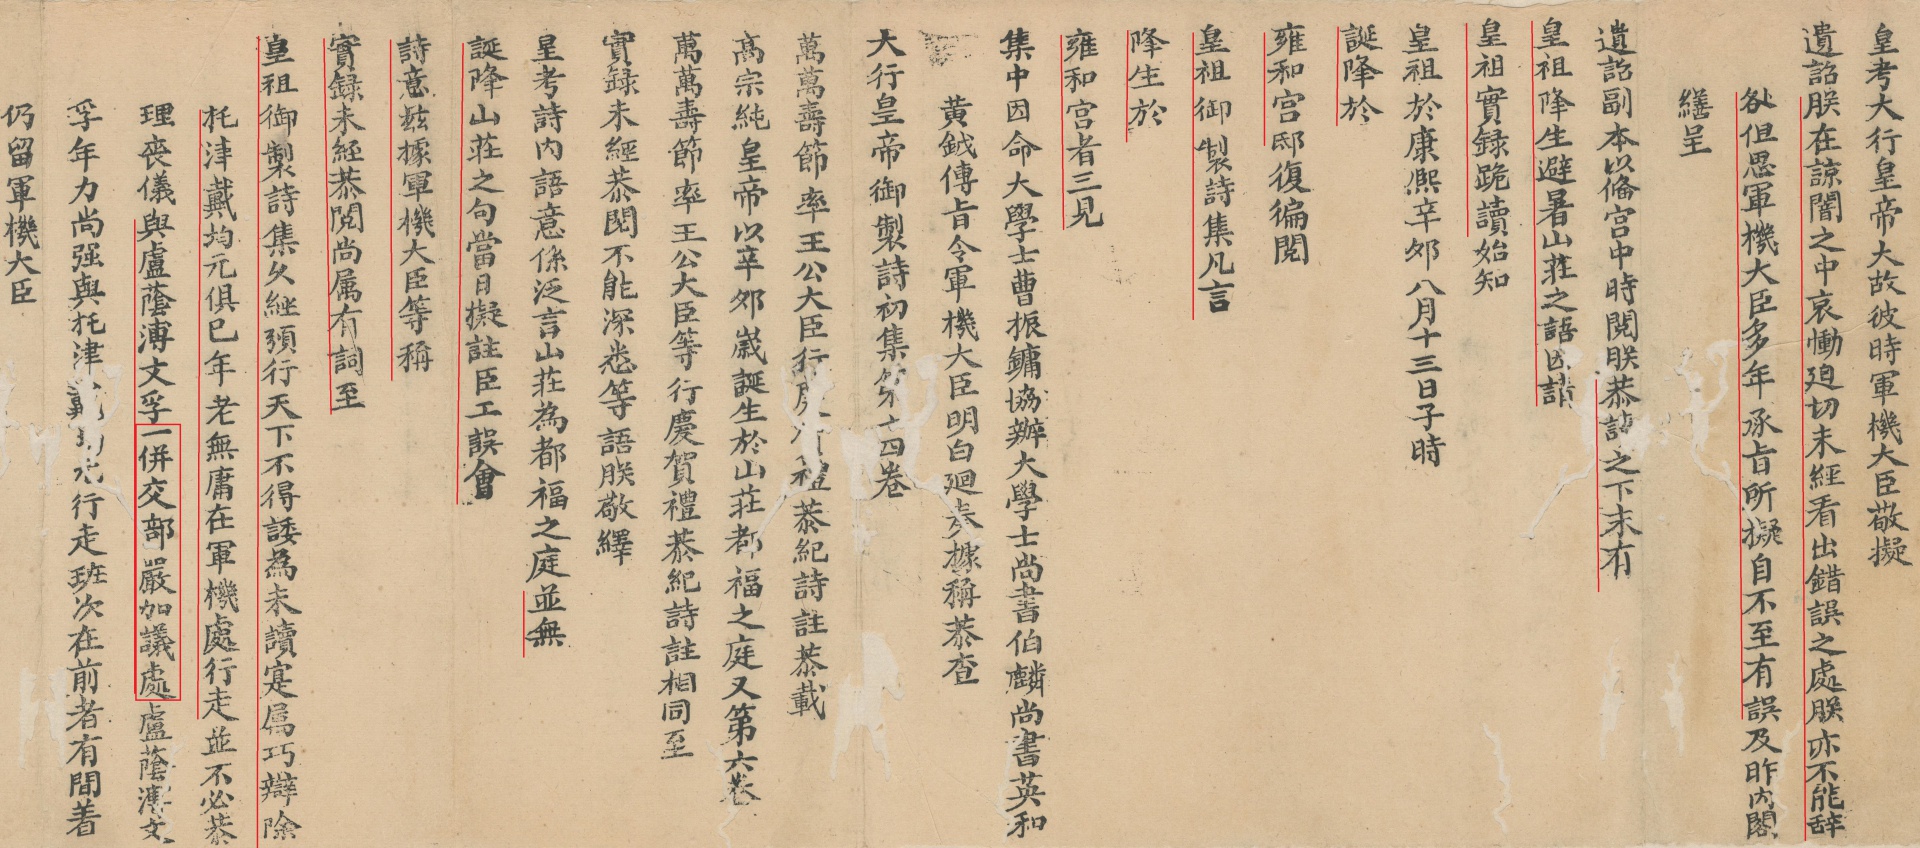 皇考大行皇帝大故彼時軍機大臣敬擬
遺詔朕在諒闇之中哀慟迫切未經看出錯誤之處朕亦不能辭
咎但思軍機大臣多年承旨所擬自不至有誤及昨內閣
繕呈
遺詔副本以偹宮中時閱朕恭讀之下末有
皇祖降生避暑山莊之語因請
皇祖實録跪讀始知
皇祖於康熙辛夘八月十三日子時
誕降於
雍和宮邸復徧閱
皇祖御製詩集凡言
降生於
雍和宮者三見
集中因命大學士曹振鏞協辦大學士尚書伯麟尚書英和
黃鉞傳旨令軍機大臣明白廻奏據稱恭查
大行皇帝御製詩初集第十四卷
萬萬壽節率王公大臣行慶賀禮恭紀詩註恭載
髙宗純皇帝以辛夘歲誕生於山莊都福之庭又第六卷
萬萬壽節率王公大臣等行慶賀禮恭紀詩註相同至
實録未經恭閱不能深悉等語朕敬繹
皇考詩內語意係泛言山莊為都福之庭並無
誕降山莊之句當日擬註臣工誤會
詩意兹據軍機大臣等稱
實録未經恭閱尚属有詞至
皇祖御製詩集久經頒行天下不得諉為未讀寔屬巧辯除
托津戴均元俱已年老無庸在軍機處行走並不必恭
理喪儀與盧蔭溥文孚一併交部嚴加議處盧蔭溥文
孚年力尚强與托津戴均元行走班次在前者有間着
仍留軍機大臣